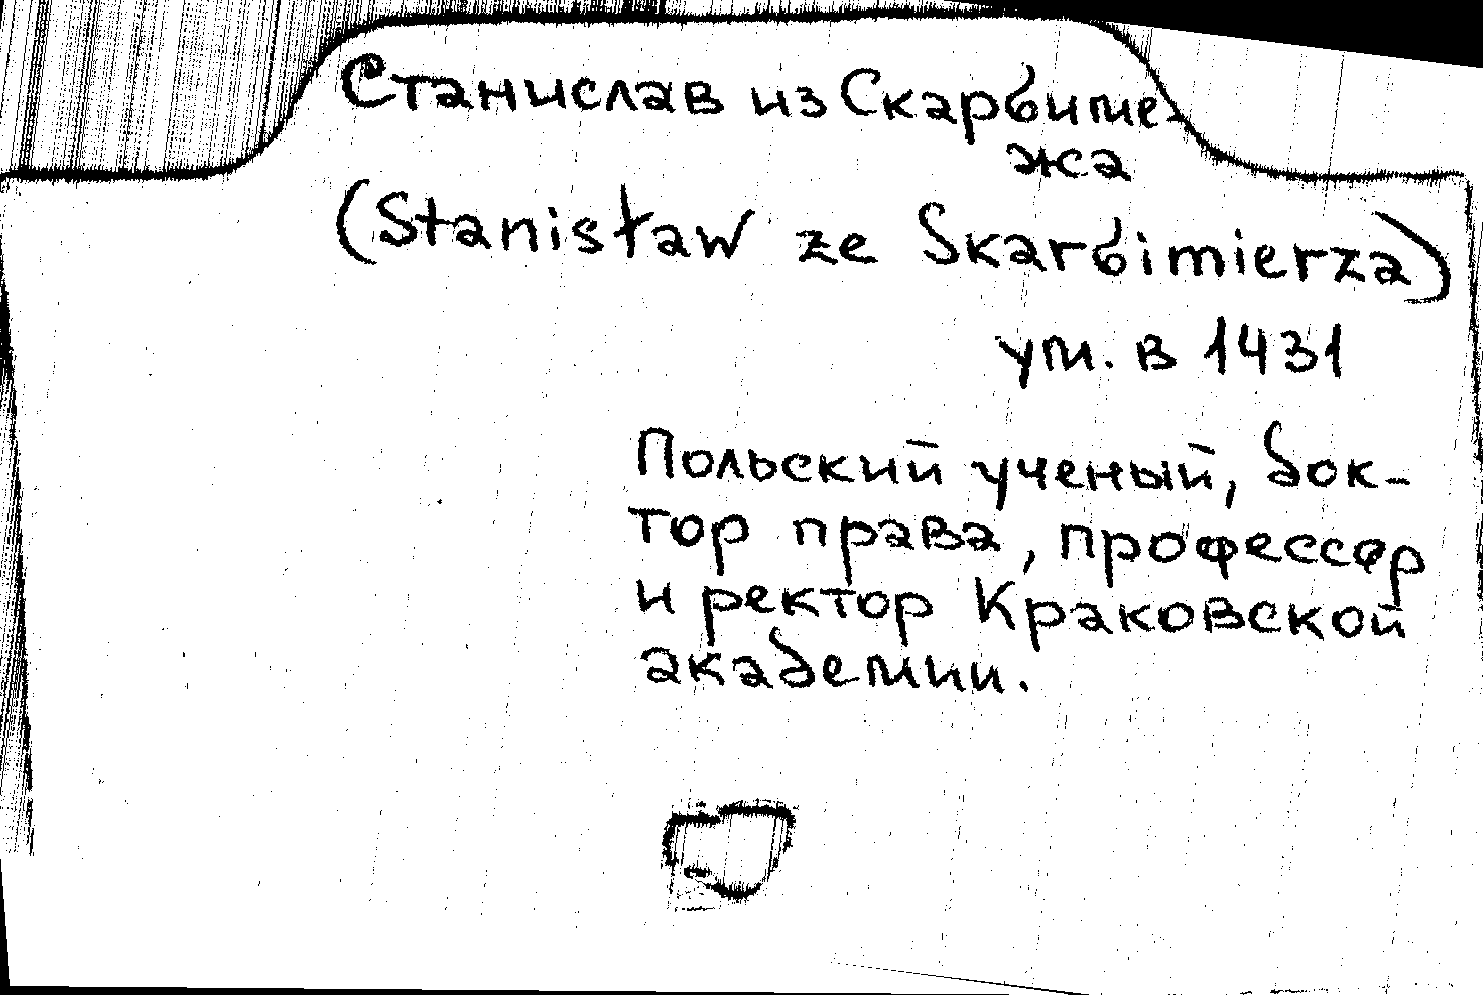 Станислав из Скарбиме-
жа
(Stanisław ze Skarbimierza)
ум. в 1431
Польский ученый, док-
тор права, профессор
и ректор Краковской
академии.